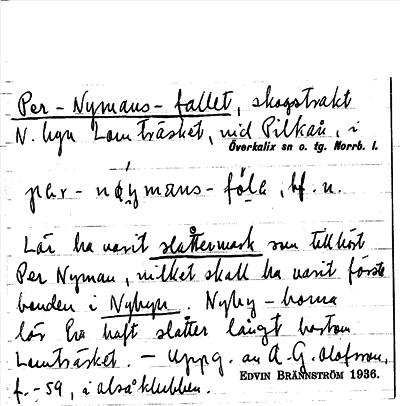 Per-Nymans-fallet, skogstrakt
N. byn Lomträsket, vid Pilkån, i
Överkalix sn o. tg. Norrb. l.
per-nymans-fölɑ, bf. n.
Lär ha varit slåttermark som tillhört
Per Nyman, vilket skall ha varit första
bonden i Nybyn. Nyby-borna
lär ha haft slåtter långt bortom
Lomträsket. - Uppg. av A. G. Olofsson,
f. -59, i Alsåklubben.
EDVIN BRÄNNSTRÖM 1936.